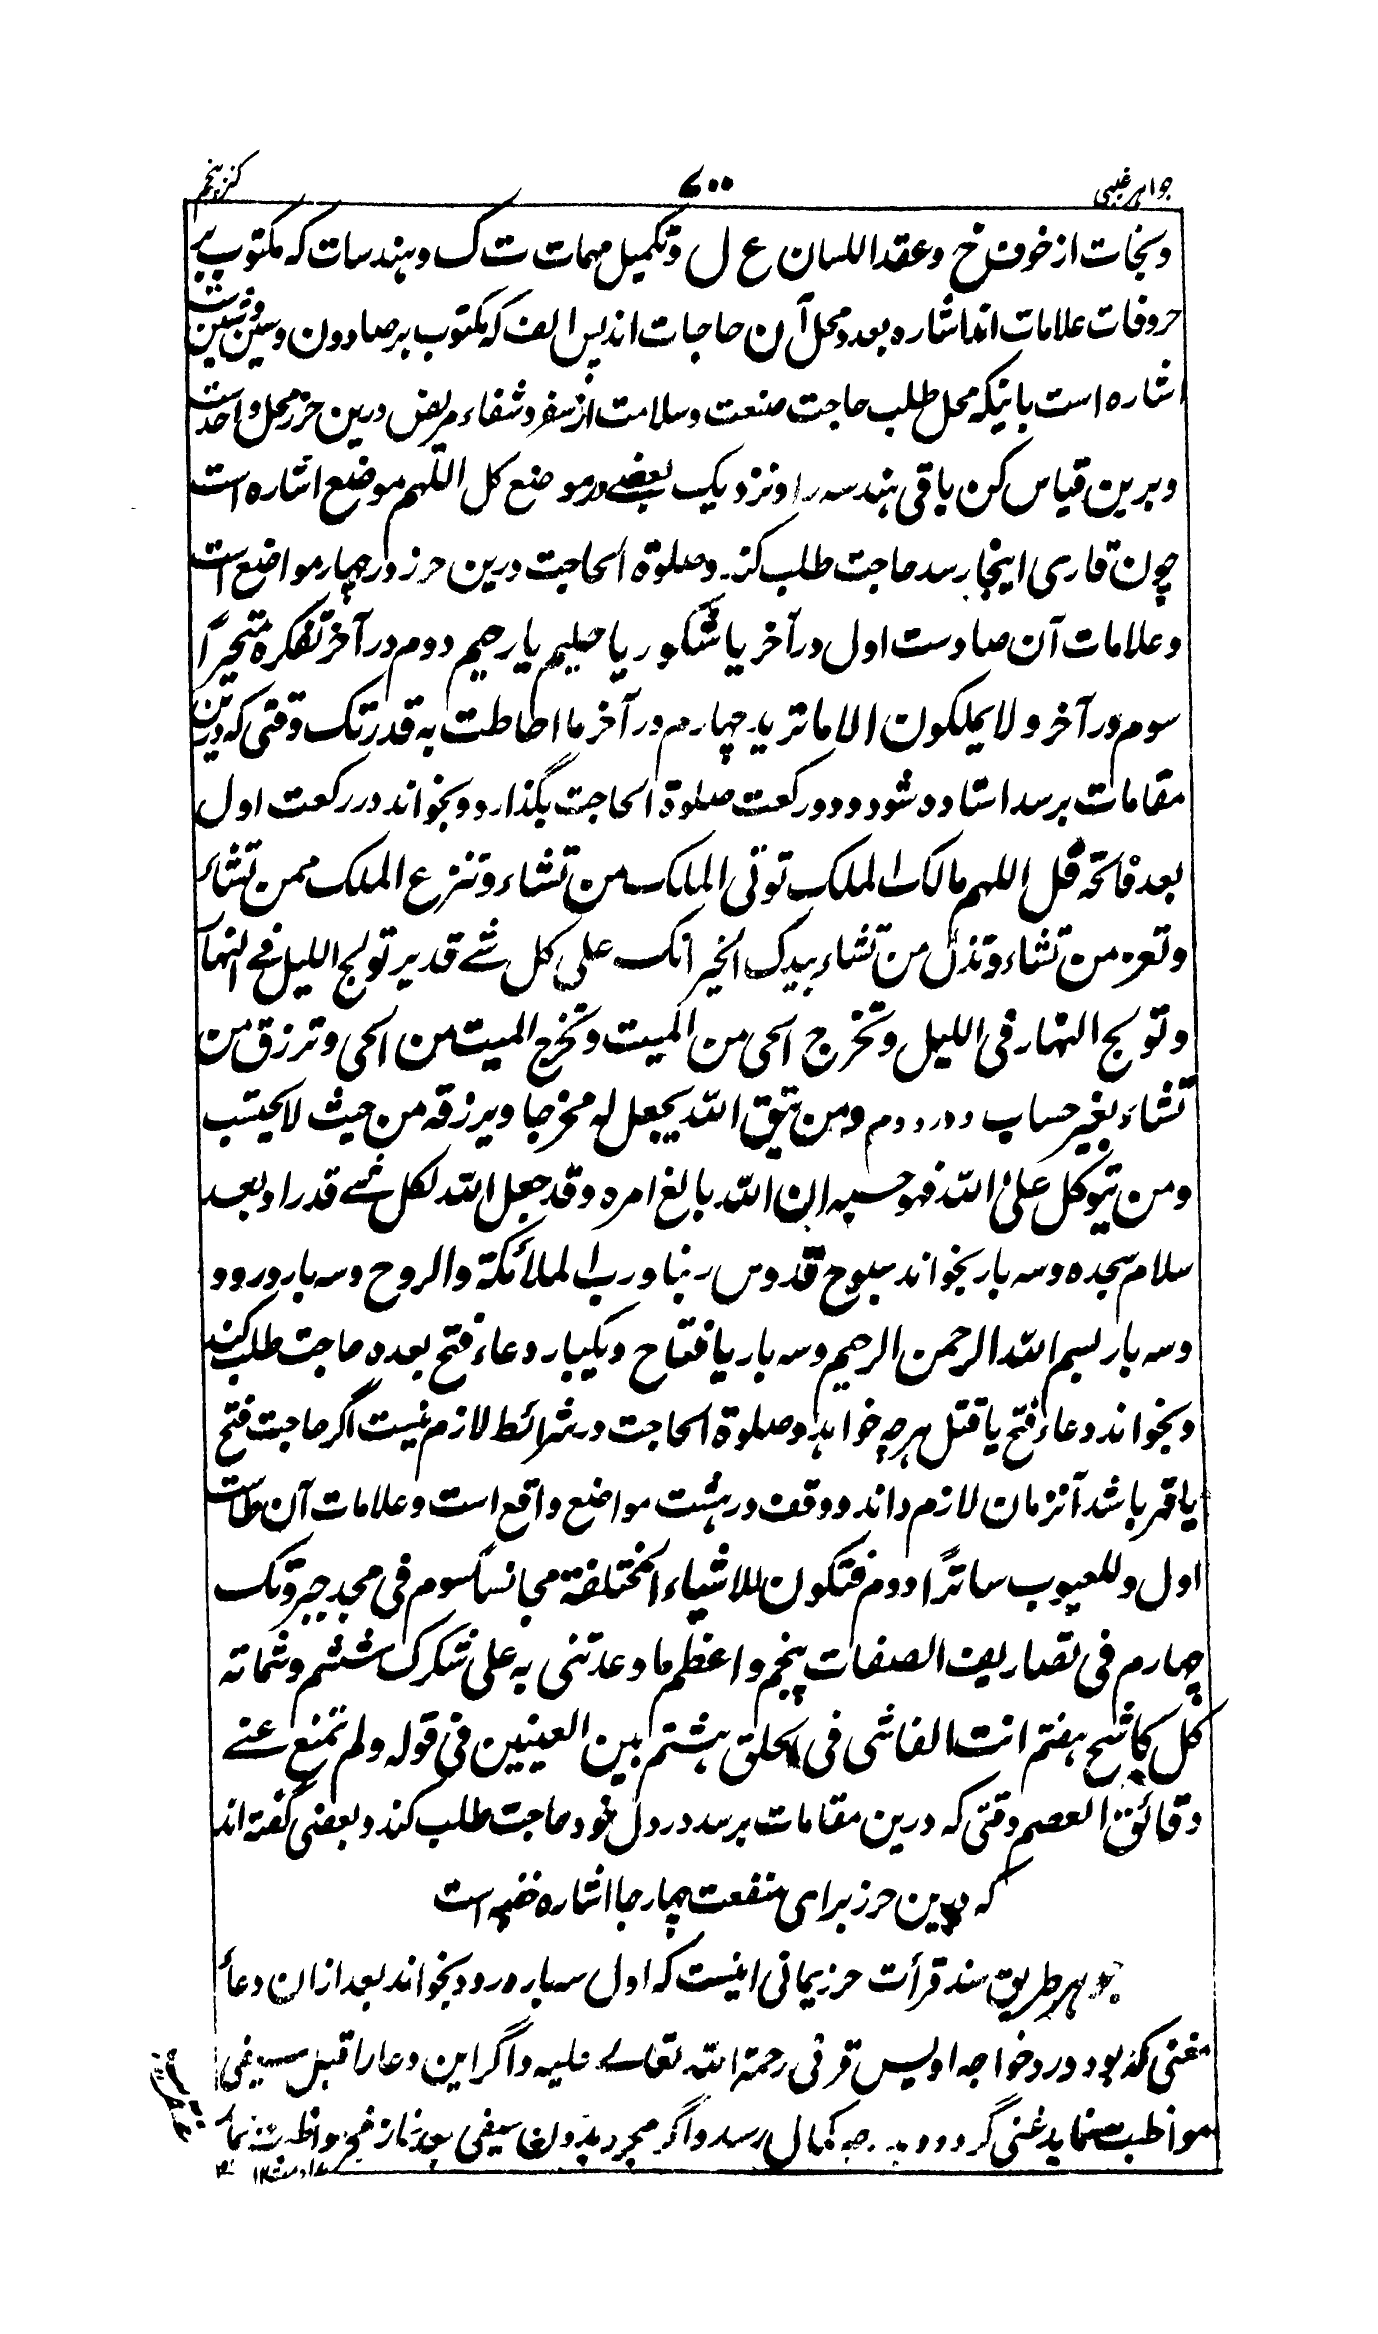 جواهر غیبی
۷۰۰
کنز پنجم
ونجات از خوف خ وعقد اللسان ع ل وتکمیل مهمات ت ک وهندسات که مکتوب بر
حروفات علامات اند اشاره بعدد محل آن حاجات اند پس الف که مکتوب بر صاد ون وسین وشین ست
اشاره است باینکه محل طلب حاجت صنعت وسلامت از سفر وشفاء مریض درین حرز محل واحد ست
وبرین قیاس کن باقی هندسه را ونزدیک بعضے در موضع کل اللهم موضع اشاره است
چون قاری اینجا رسد حاجت طلب کند وصلوة الحاجت درین حرز در چهار مواضع است
وعلامات آن صاد ست اول در آخر یا شکور یا حلیم یا رحیم دوم در آخر تفکره متحیرًا
سوم در آخر ولا یملکون الا ما ترید چهارم در آخر ما احاطت به قدرتک وقتی که درین
مقامات برسد استاده شود ودو رکعت صلوة الحاجت بگذارد وبخواند در رکعت اول
بعد فاتحه قل اللهم مالک الملک توتی الملک من تشاء وتنزع الملک ممن تشاء
وتعز من تشاء وتذل من تشاء بیدک الخیر انک علی کل شے قدیر تولج اللیل فے النهار
وتولج النهار فی اللیل وتخرج الحی من المیت وتخرج المیت من الحی وترزق من
تشاء بغیر حساب ودر دوم ومن یتق الله یجعل له مخرجا ویرزقه من حیث لا یحتسب
ومن یتوکل علی الله فهو حسبه ان الله بالغ امره وقد جعل الله لکل شے قدرا وبعد
سلام سجده وسه بار بخواند سبوح قدوس ربنا ورب الملائکة والروح وسه بار درود
وسه بار بسم الله الرحمن الرحیم وسه بار یا فتاح ویکبار دعاء فتح بعده حاجت طلب کند
وبخواند دعاء فتح یا قتل هر چه خواهد وصلوة الحاجت در شرائط لازم نیست اگر حاجت فتح
یا قهر باشد آنزمان لازم داند ووقف در هشت مواضع واقع است وعلامات آن ط است
اول وللعیوب ساترًا دوم فتکون للاشیاء المختلفة مجانسًا سوم فی مجد جبروتک
چهارم فی تصاریف الصفات پنجم واعظم ما وعدتنی به علی شکرک ششم وشماتة
کل کاشح هفتم انت الفاشی فی الخلق هشتم بین العینین فی قوله ولم تمنع عنے
دقائق العصم وقتی که درین مقامات برسد در دل خود حاجت طلب کند وبعضی گفته اند
که درین حرز برای منفعت چهار جا اشاره خفیه است
جوهر طریق سند قرأت حرز یمانی اینست که اول سه بار درود بخواند بعد ازان دعاء
مغنی که بود ورد خواجه اویس قرنی رحمة الله تعالے علیه واگر این دعا را قبل سیفی
مواظبت نماید غنی گردد وبدرجه کمال رسد واگر مجرد بدون سیفی بعد نماز فجر مواظبت نماید